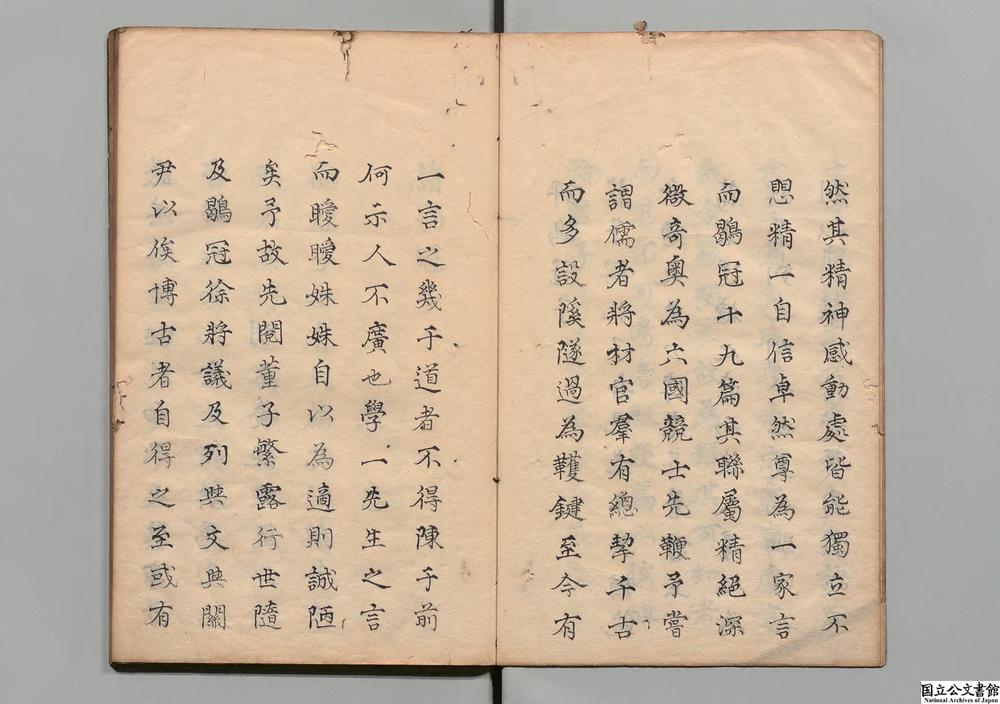 然其精神感動處皆能獨立不
思精一自信卓然尊為一家言
而鶡冠十九篇其聯屬精絕深
微奇奥為六國競士先鞭予嘗
謂儒者將材官羣有總挈千古
而多設蹊隧過為鞿鍵至今有
一言之幾于道者不得陳于前
何示人不廣也學一先生之言
而曖曖姝姝自以為適則誠陋
矣予故先閱董子繁露行世隨
及鶡冠徐將議及列與文與關
尹以俟博古者自得之至或有
国立公文書館
National Archives of Japan